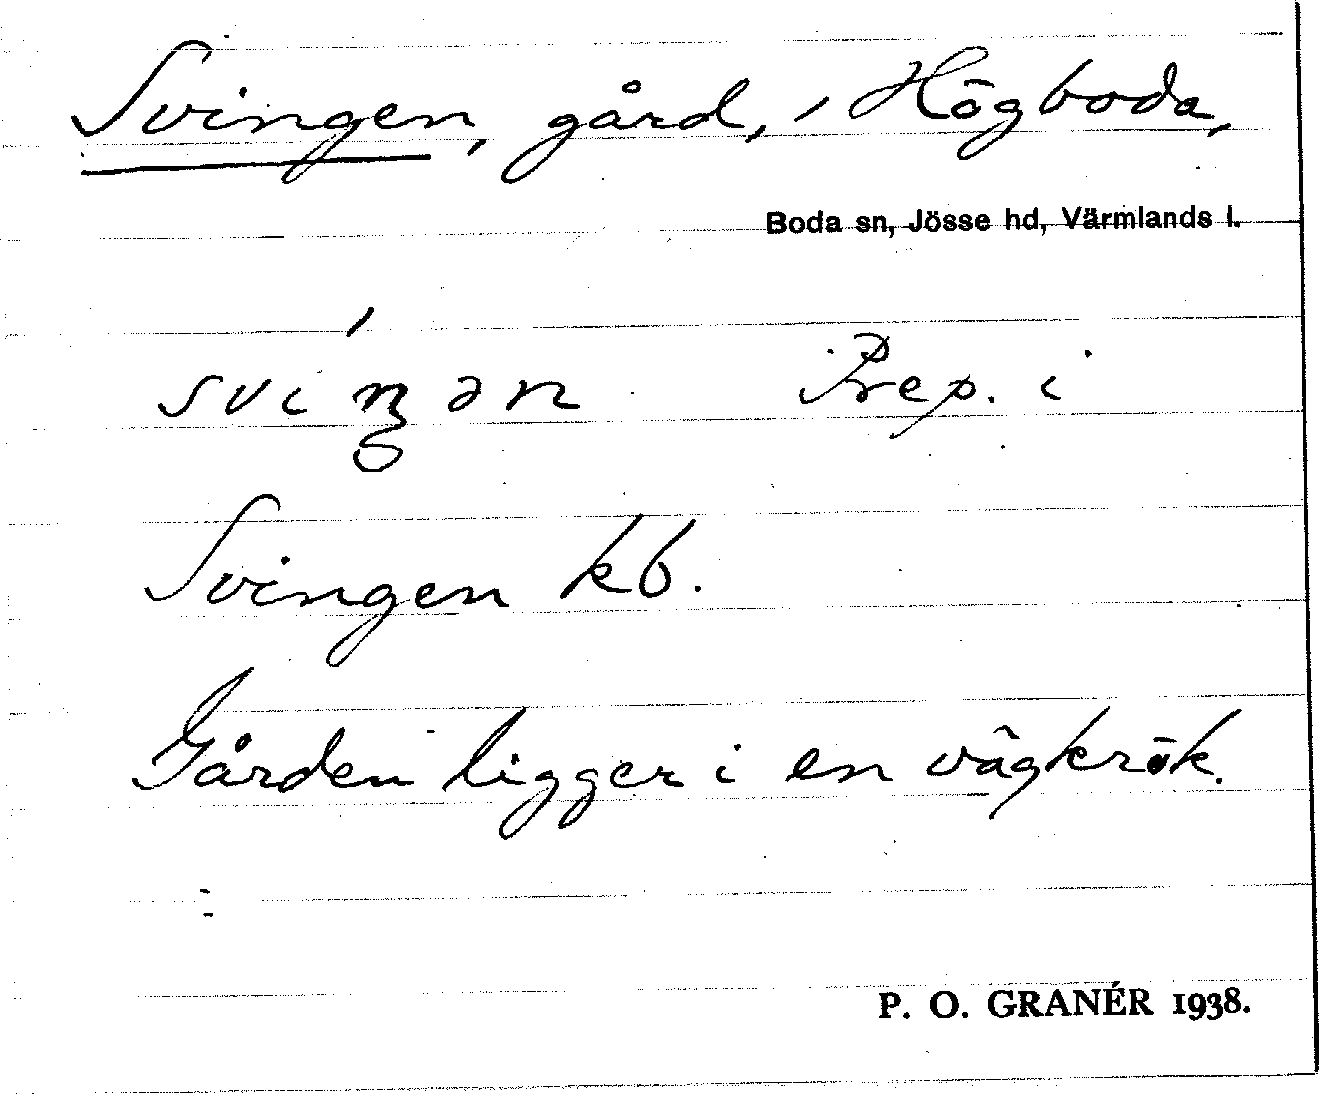 Svingen, gård, i Högboda,
Boda sn, Jösse hd, Värmlands l.
sviŋən Prep. i
Svingen kb.
Gården ligger i en vägkrök.
P. O. GRANÉR 1938.